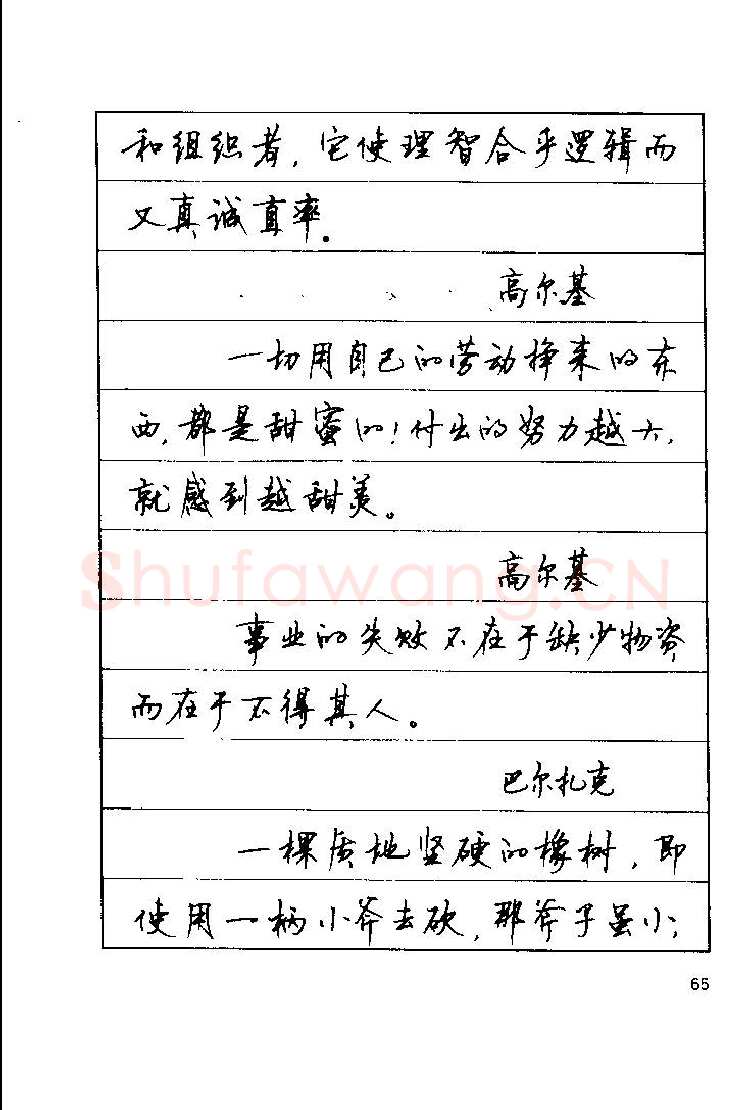 和组织者，它使理智合乎逻辑而
又真诚直率。
高尔基
一切用自己的劳动挣来的东
西，都是甜蜜的！付出的努力越大，
就感到越甜美。
Shufawang.CN
高尔基
事业的失败不在于缺少物资
而在于不得其人。
巴尔扎克
一棵质地坚硬的橡树，即
使用一柄小斧去砍，那斧子虽小；
65